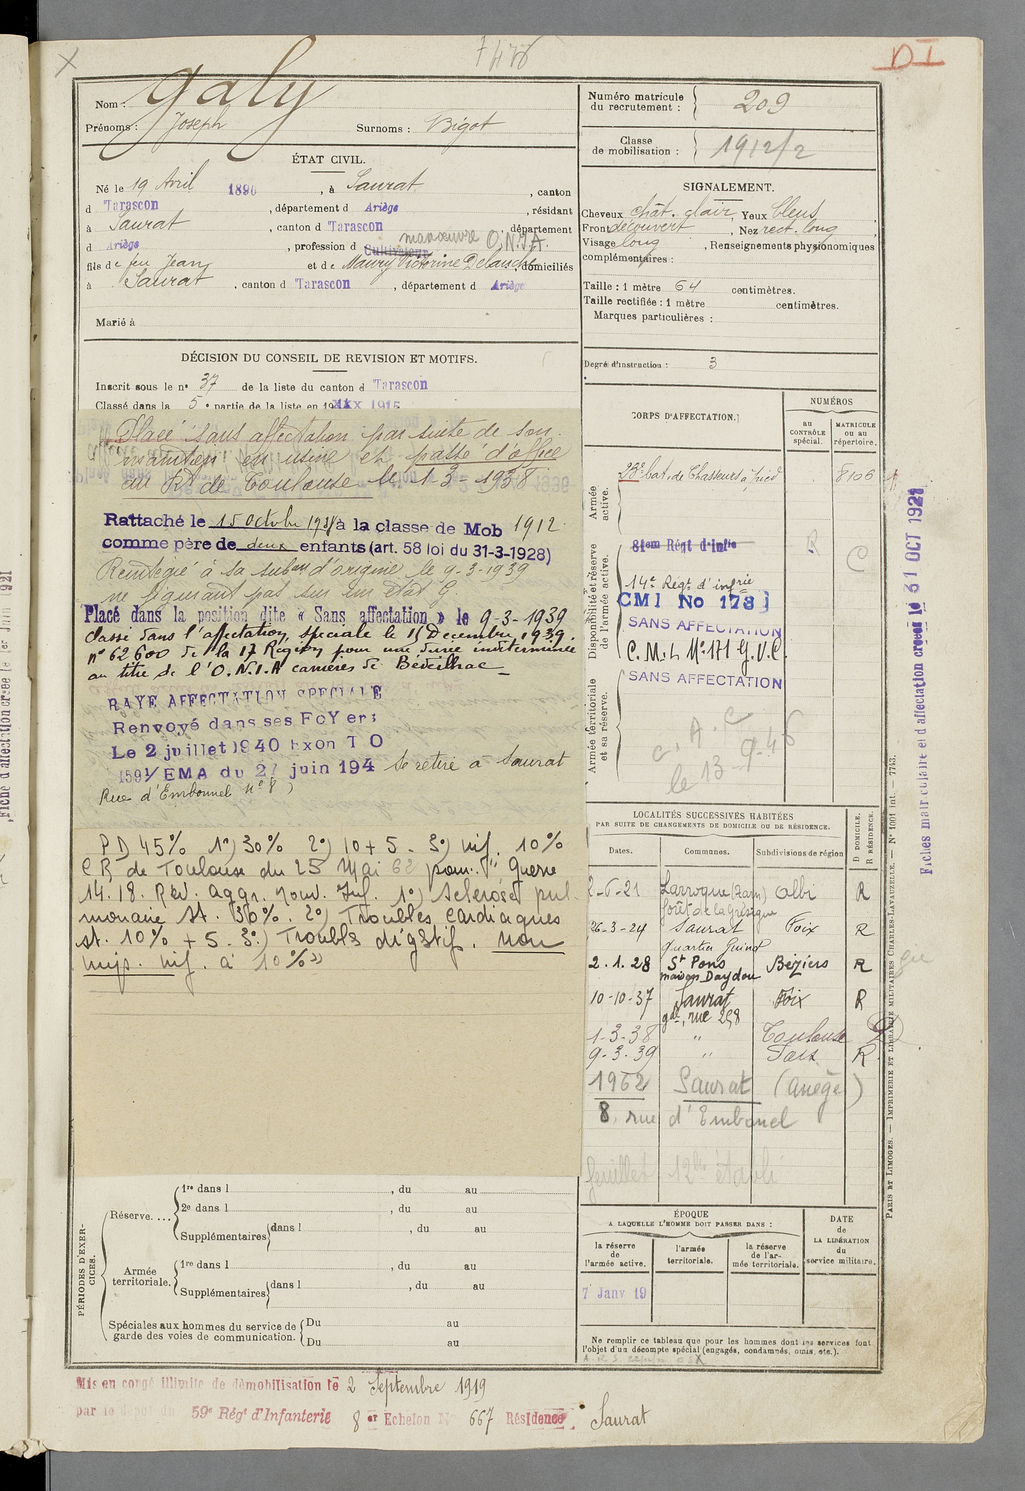 7476
D I
Nom : Galy
Prénoms : Joseph Surnoms : Bigot
Numéro matricule du recrutement : 209
Classe de mobilisation : 1912/2
ÉTAT CIVIL.
Né le 19 Avril 1890, à Saurat, canton
d Tarascon, département d Ariège, résidant
à Saurat, canton d Tarascon, département
d Ariège, profession d Cultivateur manœuvre O.N.I.A.
fils de feu Jean et de Maury Victorine Delauche, domiciliés
à Saurat, canton d Tarascon, département d Ariège
Marié à
SIGNALEMENT.
Cheveux chât. clair, Yeux bleus,
Front découvert, Nez rect. long,
Visage long, Renseignements physionomiques
complémentaires :
Taille : 1 mètre 64 centimètres.
Taille rectifiée : 1 mètre centimètres.
Marques particulières :
Degré d'instruction : 3
DÉCISION DU CONSEIL DE REVISION ET MOTIFS.
Inscrit sous le n° 37 de la liste du canton d Tarascon
Classé dans la 5e partie de la liste en 19
Placé sans affectation par suite de son
maintien en usine et passé d'office
au Rt de Toulouse le 1-3-1938
Rattaché le 15 Octobre 1938 à la classe de Mob 1912
comme père de deux enfants (art. 58 loi du 31-3-1928)
Réintégré à sa subon d'origine le 9-3-1939
ne figurant pas sur un état G.
Placé dans la position dite « Sans affectation » le 9-3-1939
Classé dans l'affectation spéciale le 15 Décembre 1939.
n° 62600 de la 17 Région pour une durée indéterminée
au titre de l'O.N.I.A carrières de Bédeilhac
RAYE AFFECTATION SPECIALE
Renvoyé dans ses FOYers
Le 2 juillet 1940 Exon T O
1591/EMA du 27 juin 194 Se retire à Saurat
Rue d'Embonnel N° 8
PD 45% 1°) 30% 2°) 10 + 5 - 3°) inf. 10%
CR de Toulouse du 25 Mai 62 pour. " Guerre
14.18. Rev. aggr. nouv. Inf. 1°) Sclérose pul-
monaire st. 30%. 2°) Troubles cardiaques
st. 10% + 5 - 3°) Troubles digestifs. non
imp. inf. à 10% "
CORPS D'AFFECTATION.
NUMÉROS
au contrôle spécial.
matricule ou au répertoire.
Armée active.
23e bat. de Chasseurs à pied 8106
Disponibilité et réserve de l'armée active.
81em Régt d'Infie
14e Régt d'infrie
CMI No 173
SANS AFFECTATION
C.M.I. N° 171 G.V.C.
SANS AFFECTATION
R
C
Armée territoriale et sa réserve.
C. A. C
le 13-9-46
LOCALITÉS SUCCESSIVES HABITÉES
PAR SUITE DE CHANGEMENTS DE DOMICILE OU DE RÉSIDENCE.
Dates. Communes. Subdivisions de région D DOMICILE. R RÉSIDENCE.
2-6-21 Larroque (Tarn) Albi R
forêt de la Grésigne
26-3-24 Saurat Foix R
quartier Guinol
2.1.28 St Pons Béziers R
maison Daydou
10-10-37 Saurat Foix R
gde rue 258
1-3-38 " Toulouse D
9-3-39 " Foix R
1962 Saurat (Ariège)
8, rue d'Embonel
feuillet 12bis établi
PÉRIODES D'EXERCICES.
Réserve....
1re dans l , du au
2e dans l , du au
Supplémentaires dans l , du au
Armée territoriale.
1re dans l , du au
Supplémentaires dans l , du au
Spéciales aux hommes du service de garde des voies de communication.
Du au
Du au
ÉPOQUE
A LAQUELLE L'HOMME DOIT PASSER DANS :
la réserve de l'armée active.
l'armée territoriale.
la réserve de l'armée territoriale.
DATE de LA LIBÉRATION du service militaire.
7 Janv 19
Ne remplir ce tableau que pour les hommes dont les services font
l'objet d'un décompte spécial (engagés, condamnés, omis, etc.).
Mis en congé illimité de démobilisation le 2 Septembre 1919
par le dépôt du 59e Régt d'Infanterie 8 er Echelon N° 667 Résidence Saurat
Fiches matriculaire et d'affectation créées le 31 OCT 1921
PARIS ET LIMOGES. — IMPRIMERIE ET LIBRAIRIE MILITAIRES CHARLES-LAVAUZELLE. — N° 1001 int. — 7743.